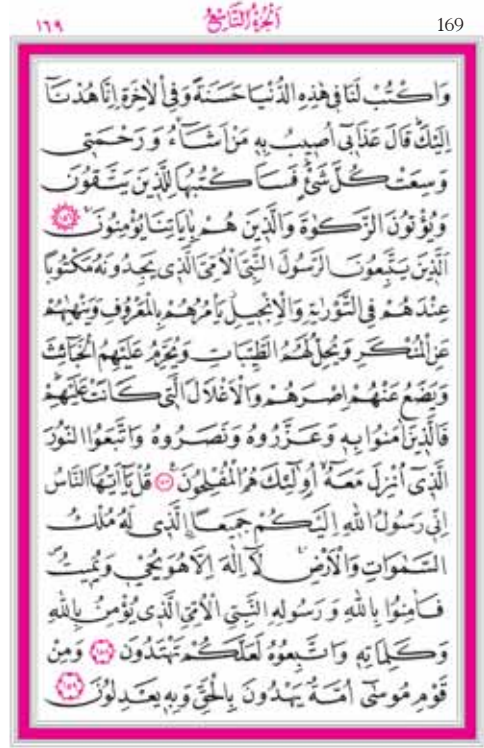 ١٦٩ اَلْجُزْءُ التَّاسِعُ 169
وَاكْتُبْ لَنَا فٖى هٰذِهِ الدُّنْيَا حَسَنَةً وَفِى الْاٰخِرَةِ اِنَّا هُدْنَٓا
اِلَيْكَ قَالَ عَذَابٖٓى اُصٖيبُ بِهٖ مَنْ اَشَٓاءُ وَرَحْمَتٖى
وَسِعَتْ كُلَّ شَىْءٍ فَسَاَكْتُبُهَا لِلَّذٖينَ يَتَّقُونَ
وَيُؤْتُونَ الزَّكٰوةَ وَالَّذٖينَ هُمْ بِاٰيَاتِنَا يُؤْمِنُونَ ﴿١٥٦﴾
اَلَّذٖينَ يَتَّبِعُونَ الرَّسُولَ النَّبِىَّ الْاُمِّىَّ الَّذٖى يَجِدُونَهُ مَكْتُوبًا
عِنْدَهُمْ فِى التَّوْرٰيةِ وَالْاِنْجٖيلِ يَاْمُرُهُمْ بِالْمَعْرُوفِ وَيَنْهٰيهُمْ
عَنِ الْمُنْكَرِ وَيُحِلُّ لَهُمُ الطَّيِّبَاتِ وَيُحَرِّمُ عَلَيْهِمُ الْخَبَٓائِثَ
وَيَضَعُ عَنْهُمْ اِصْرَهُمْ وَالْاَغْلَالَ الَّتٖى كَانَتْ عَلَيْهِمْ
فَالَّذٖينَ اٰمَنُوا بِهٖ وَعَزَّرُوهُ وَنَصَرُوهُ وَاتَّبَعُوا النُّورَ
الَّذٖٓى اُنْزِلَ مَعَهُٓ اُولٰٓئِكَ هُمُ الْمُفْلِحُونَ ﴿١٥٧﴾ قُلْ يَٓا اَيُّهَا النَّاسُ
اِنّٖى رَسُولُ اللّٰهِ اِلَيْكُمْ جَمٖيعًا الَّذٖى لَهُ مُلْكُ
السَّمٰوَاتِ وَالْاَرْضِ لَٓا اِلٰهَ اِلَّا هُوَ يُحْيٖ وَيُمٖيتُ
فَاٰمِنُوا بِاللّٰهِ وَرَسُولِهِ النَّبِىِّ الْاُمِّىِّ الَّذٖى يُؤْمِنُ بِاللّٰهِ
وَكَلِمَاتِهٖ وَاتَّبِعُوهُ لَعَلَّكُمْ تَهْتَدُونَ ﴿١٥٨﴾ وَمِنْ
قَوْمِ مُوسٰٓى اُمَّةٌ يَهْدُونَ بِالْحَقِّ وَبِهٖ يَعْدِلُونَ ﴿١٥٩﴾